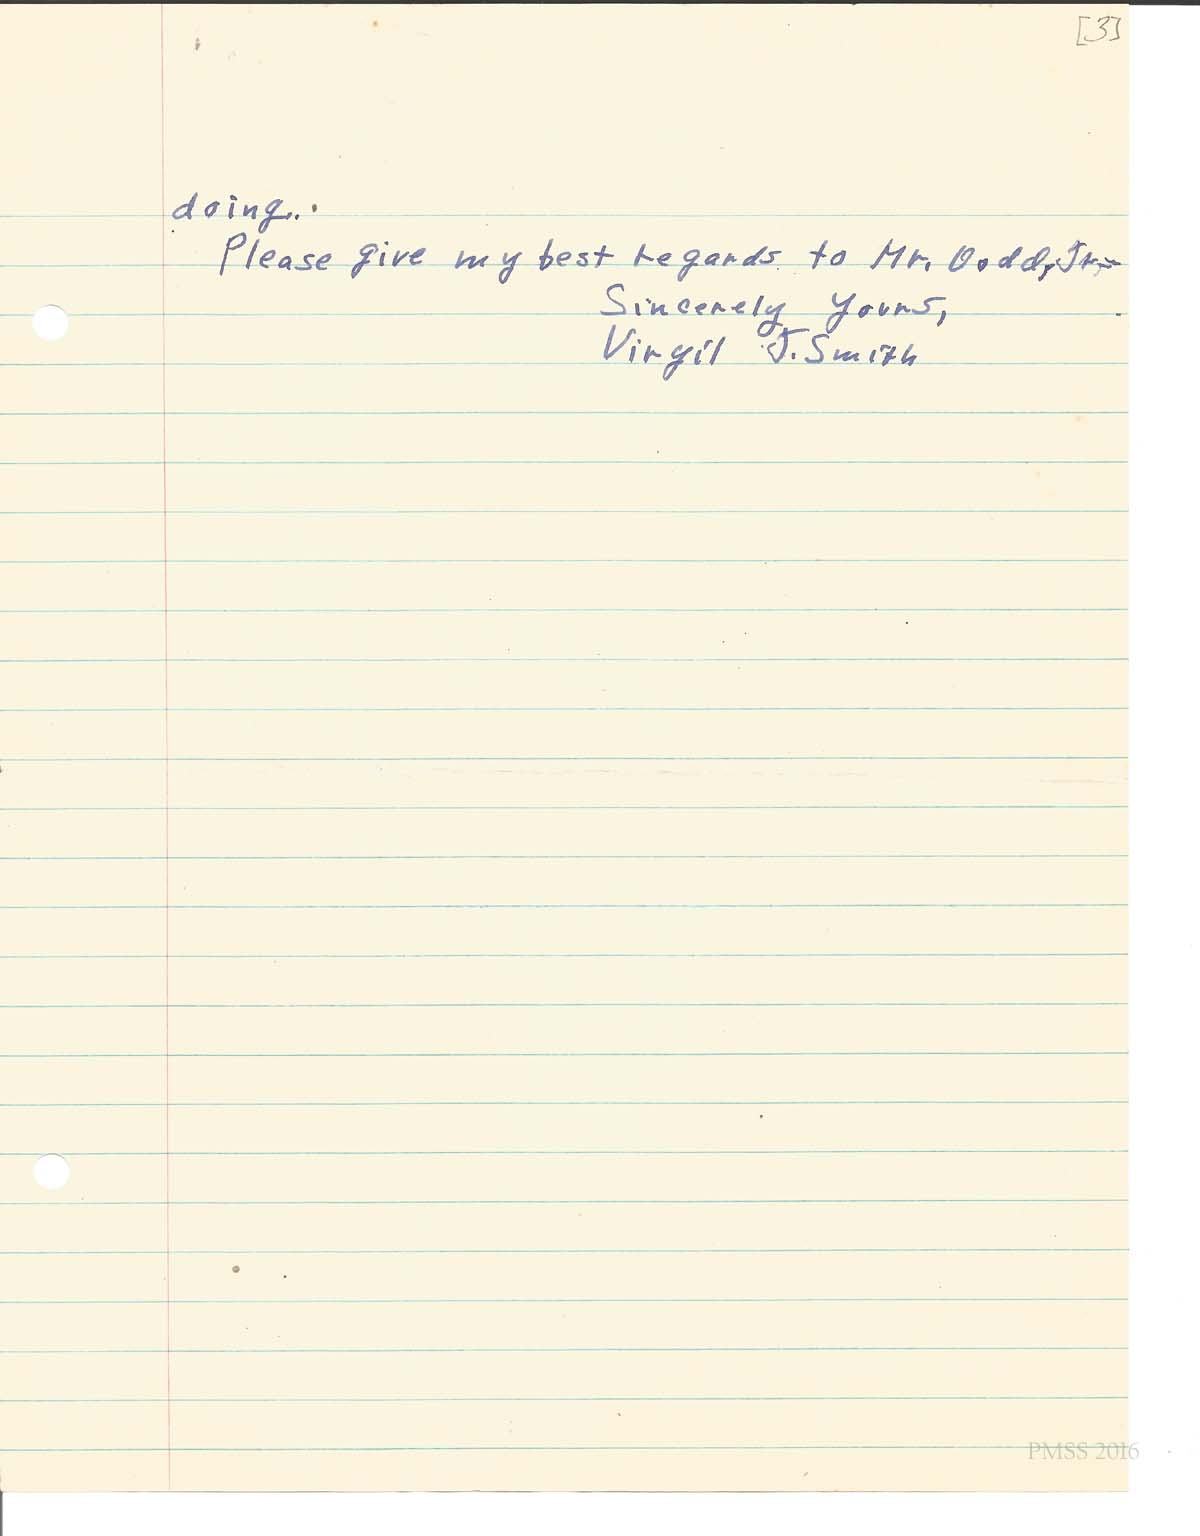 [3]
doing..
Please give my best regards to Mr. Dodd, Jr.
Sincerely Yours,
Virgil J. Smith
PMSS 2016